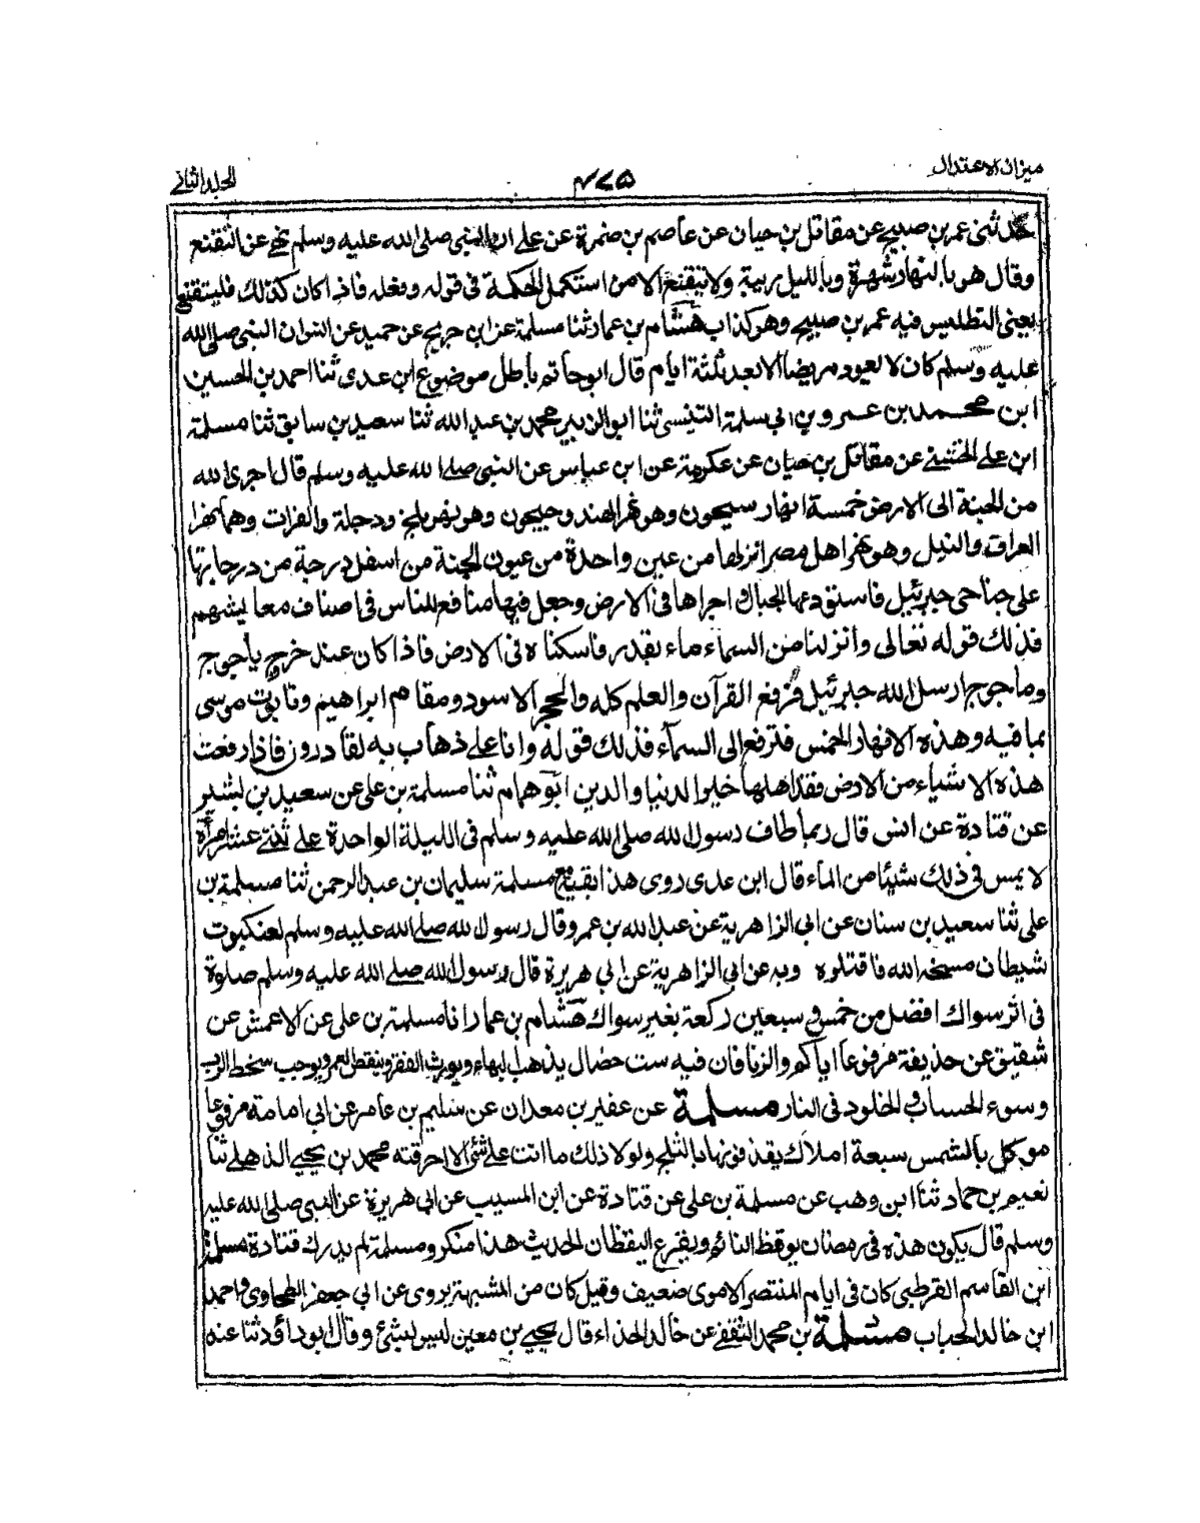 ميزان الاعتدال
٤٧٥
الجلد الثاني
حدثنى عمر بن صبيح عن مقاتل بن حيان عن عاصم بن ضمرة عن على ان النبى صلى الله عليه وسلم نهى عن التقنع
وقال هو بالنهار شهرة وبالليل ريبة ولا يتقنع الا من استكمل الحكمة فى قوله وفعله فاذا كان كذلك فليتقنع
يعنى التطليس فيه عمر بن صبيح وهو كذاب هشام بن عمار ثنا مسلمة عن ابن جريج عن حميد عن انس ان النبى صلى الله
عليه وسلم كان لا يعود مريضا الا بعد ثلثة ايام قال ابو حاتم باطل موضوع ابن عدى ثنا احمد بن الحسين
ابن محمد بن عمرو بن ابى سلمة التنيسى ثنا ابو الزبير محمد بن عبد الله ثنا سعيد بن سابق ثنا مسلمة
ابن على الخشنى عن مقاتل بن حيان عن عكرمة عن ابن عباس عن النبى صلى الله عليه وسلم قال اجرى الله
من الجنة الى الارض خمسة انهار سيحون وهو نهر الهند وجيحون وهو نهر بلخ ودجلة والفرات وهما نهرا
العراق والنيل وهو نهر اهل مصر انزلها من عين واحدة من عيون الجنة من اسفل درجة من درجاتها
على جناحى جبرئيل فاستودعها الجبال واجراها فى الارض وجعل فيها منافع للناس فى اصناف معايشهم
فذلك قوله تعالى وانزلنا من السماء ماء بقدر فاسكناه فى الارض فاذا كان عند خروج ياجوج
وماجوج ارسل الله جبرئيل فرفع القرآن والعلم كله والحجر الاسود ومقام ابراهيم وتابوت موسى
بما فيه وهذه الانهار الخمس فترفع الى السمآء فذلك قوله وانا على ذهاب به لقادرون فاذا رفعت
هذه الاشياء من الارض فقد اهلها خير الدنيا والدين ابو همام ثنا مسلمة بن على عن سعيد بن بشير
عن قتادة عن انس قال ربما طاف رسول الله صلى الله عليه وسلم فى الليلة الواحدة على ثنتى عشرة امرأة
لا يمس فى ذلك شيئا من الماء قال ابن عدى روى هذا بقية عن مسلمة سليمان بن عبد الرحمن ثنا مسلمة بن
على ثنا سعيد بن سنان عن ابى الزاهرية عن عبد الله بن عمر وقال رسول لله صلى الله عليه وسلم العنكبوت
شيطان مسخه الله فاقتلوه وبه عن ابى الزاهرية عن ابى هريرة قال رسول الله صلى الله عليه وسلم صلوة
فى اثر سواك افضل من خمس و سبعين ركعة بغير سواك هشام بن عمار انا مسلمة بن على عن الاعمش عن
شقيق عن حذيفة مرفوعا اياكم والزنا فان فيه ست خصال يذهب البهاء ويورث الفقر وينقص العمر ويوجب سخط الرب
وسوء الحساب والخلود فى النار مسلمة عن عفير بن معدان عن سليم بن عامر عن ابى امامة مرفوعا
موكل بالشمس سبعة املاك يقذفونها بالثلج ولولا ذلك ما اتت على شئ الا احرقته محمد بن يحيى الذهلى ثنا
نعيم بن حماد ثنا ابن وهب عن مسلمة بن على عن قتادة عن ابن المسيب عن ابى هريرة عن النبى صلى الله عليه
وسلم قال يكون هذه فى رمضان يوقظ النائم ويفزع اليقظان الحديث هذا منكر ومسلمة لم يدرك قتادة مسلمة
ابن القاسم القرطبى كان فى ايام المنتصر الاموى ضعيف وقيل كان من المشبهة يروى عن ابى جعفر الطحاوى واحمد
ابن خالد الحباب مسلمة بن محمد الثقفى عن خالد الحذاء قال يحيى بن معين ليس بشئ وقال ابو داؤد ثنا عنه